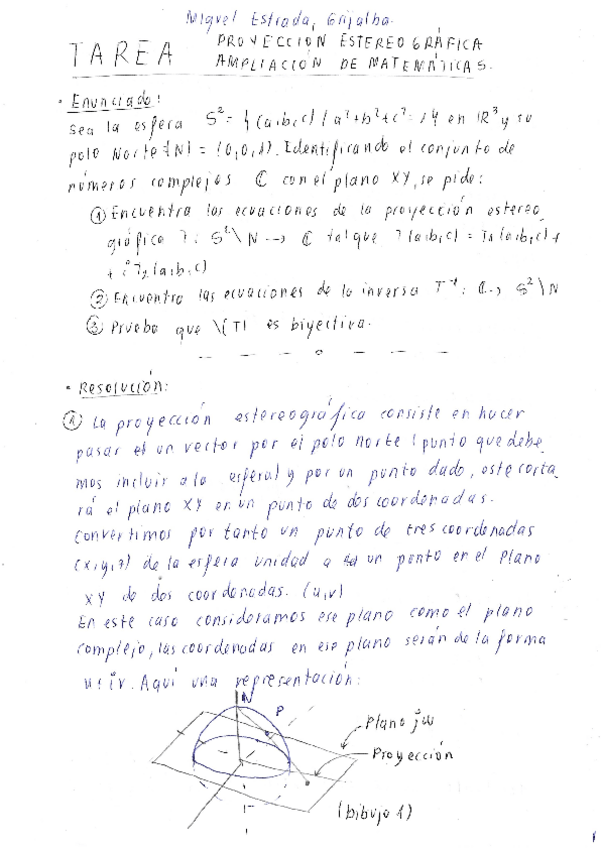 Miguel Estrada, Grijalba.
TAREA
PROYECCIÓN ESTEREOGRÁFICA
AMPLIACIÓN DE MATEMÁTICAS.
• Enunciado:
Sea la esfera S² = {(a,b,c) / a²+b²+c² = 1} en ℝ³ y su
polo Norte {N} = (0,0,1). Identificando el conjunto de
números complejos ℂ con el plano XY, se pide:
① Encuentra las ecuaciones de la proyección estereo-
gráfica T: S²\N → ℂ tal que T(a,b,c) = T₁(a,b,c) +
+ i T₂(a,b,c)
② Encuentra las ecuaciones de la inversa T⁻¹: ℂ → S²\N
③ Prueba que es biyectiva.
• Resolución:
① La proyección estereográfica consiste en hacer
pasar un vector por el polo norte (punto que debe-
mos incluir a la esfera) y por un punto dado, este corta-
rá el plano XY en un punto de dos coordenadas.
Convertimos por tanto un punto de tres coordenadas
(x,y,z) de la esfera unidad a un punto en el plano
XY de dos coordenadas. (u,v)
En este caso consideramos ese plano como el plano
complejo, las coordenadas en ese plano serán de la forma
u+iv. Aquí una representación:
N
P
Plano jw
Proyección
(Dibujo 1)
1